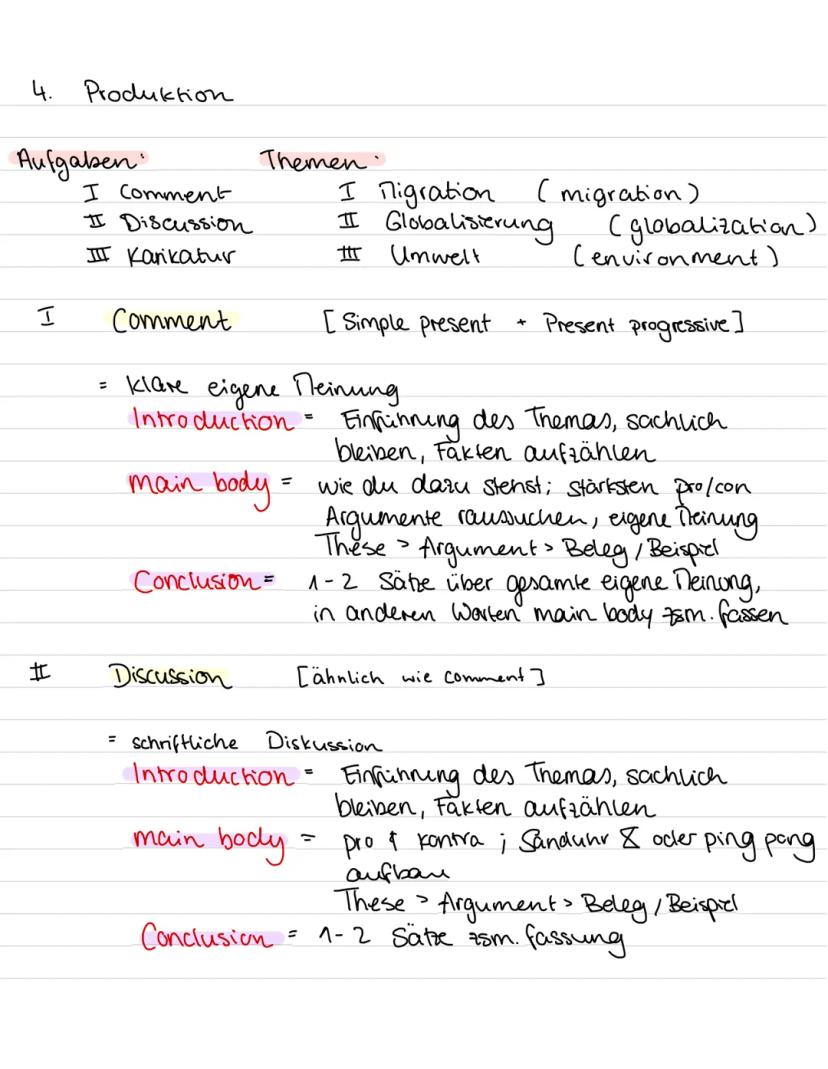 4. Produktion
Aufgaben: Themen:
I Comment I Migration (migration)
II Discussion II Globalisierung (globalization)
III Karikatur III Umwelt (environment)
I Comment [Simple present + Present progressive]
= klare eigene Meinung
Introduction = Einführung des Themas, sachlich
bleiben, Fakten aufzählen
main body = wie du dazu stehst; stärksten pro/con
Argumente raussuchen, eigene Meinung
These > Argument > Beleg / Beispiel
Conclusion = 1-2 Sätze über gesamte eigene Meinung,
in anderen Worten main body zsm. fassen
II Discussion [ähnlich wie comment]
= schriftliche Diskussion
Introduction = Einführung des Themas, sachlich
bleiben, Fakten aufzählen
main body = pro & kontra ; Sanduhr ⧖ oder ping pong
aufbau
These > Argument > Beleg / Beispiel
Conclusion = 1-2 Sätze zsm. fassung